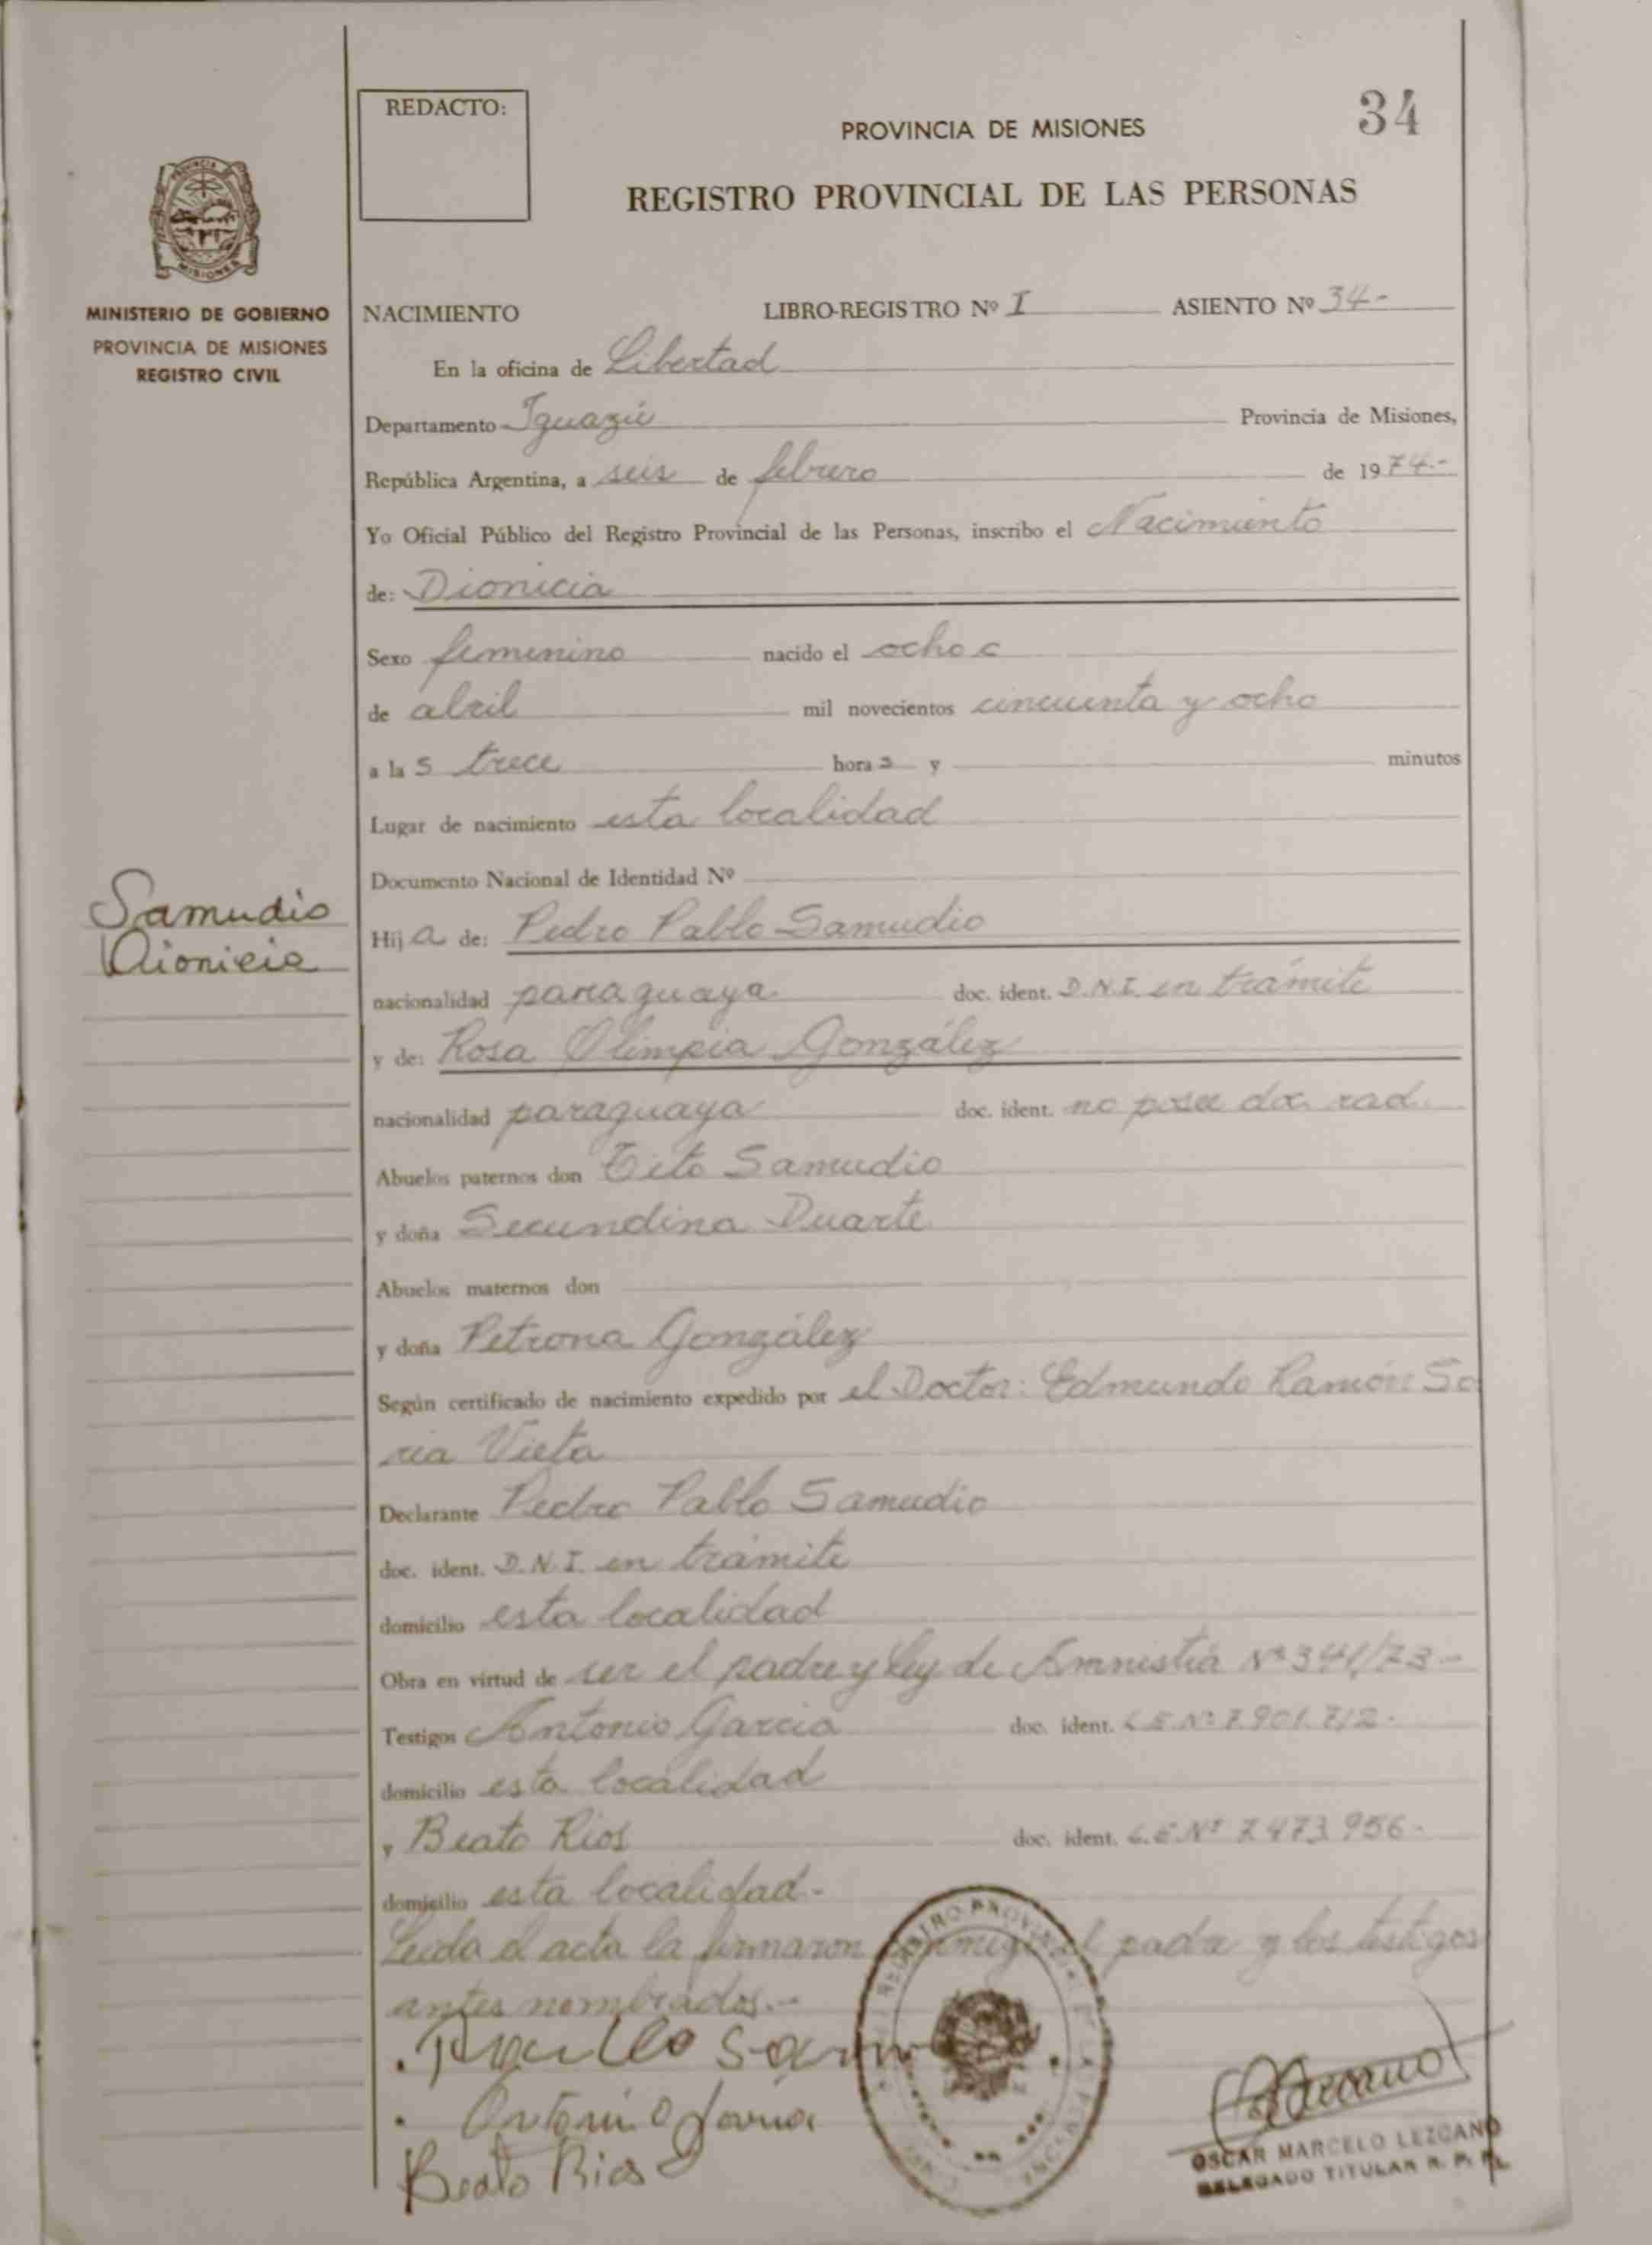 34
REDACTO:
PROVINCIA DE MISIONES
REGISTRO PROVINCIAL DE LAS PERSONAS
MINISTERIO DE GOBIERNO
PROVINCIA DE MISIONES
REGISTRO CIVIL
NACIMIENTO LIBRO-REGISTRO Nº I ASIENTO Nº 34-
En la oficina de Libertad
Departamento Iguazú Provincia de Misiones,
República Argentina, a seis de febrero de 1974.-
Yo Oficial Público del Registro Provincial de las Personas, inscribo el Nacimiento
de: Dionicia
Sexo femenino nacido el ocho
de abril mil novecientos cincuenta y ocho
a las trece horas y minutos
Lugar de nacimiento esta localidad
Documento Nacional de Identidad Nº
Samudio
Dionicia
Hija de: Pedro Pablo Samudio
nacionalidad paraguaya doc. ident. D.N.I. en trámite
y de: Rosa Olimpia González
nacionalidad paraguaya doc. ident. no posee doc. rad.
Abuelos paternos don Tito Samudio
y doña Secundina Duarte
Abuelos maternos don
y doña Petrona González
Según certificado de nacimiento expedido por el Doctor: Edmundo Ramón So
ria Vieta
Declarante Pedro Pablo Samudio
doc. ident. D.N.I. en trámite
domicilio esta localidad
Obra en virtud de ser el padre y Ley de Amnistía Nº 341/73-
Testigos Antonio Garcia doc. ident. L.E. Nº 7.901.712.
domicilio esta localidad
y Beato Rios doc. ident. L.E. Nº 7.473.956-
domicilio esta localidad-
Leida el acta la firmaron conmigo el padre y los testigos
antes nombrados.-
Antonio Garcia
Beato Rios
OSCAR MARCELO LEZCANO
DELEGADO TITULAR R. P. P.